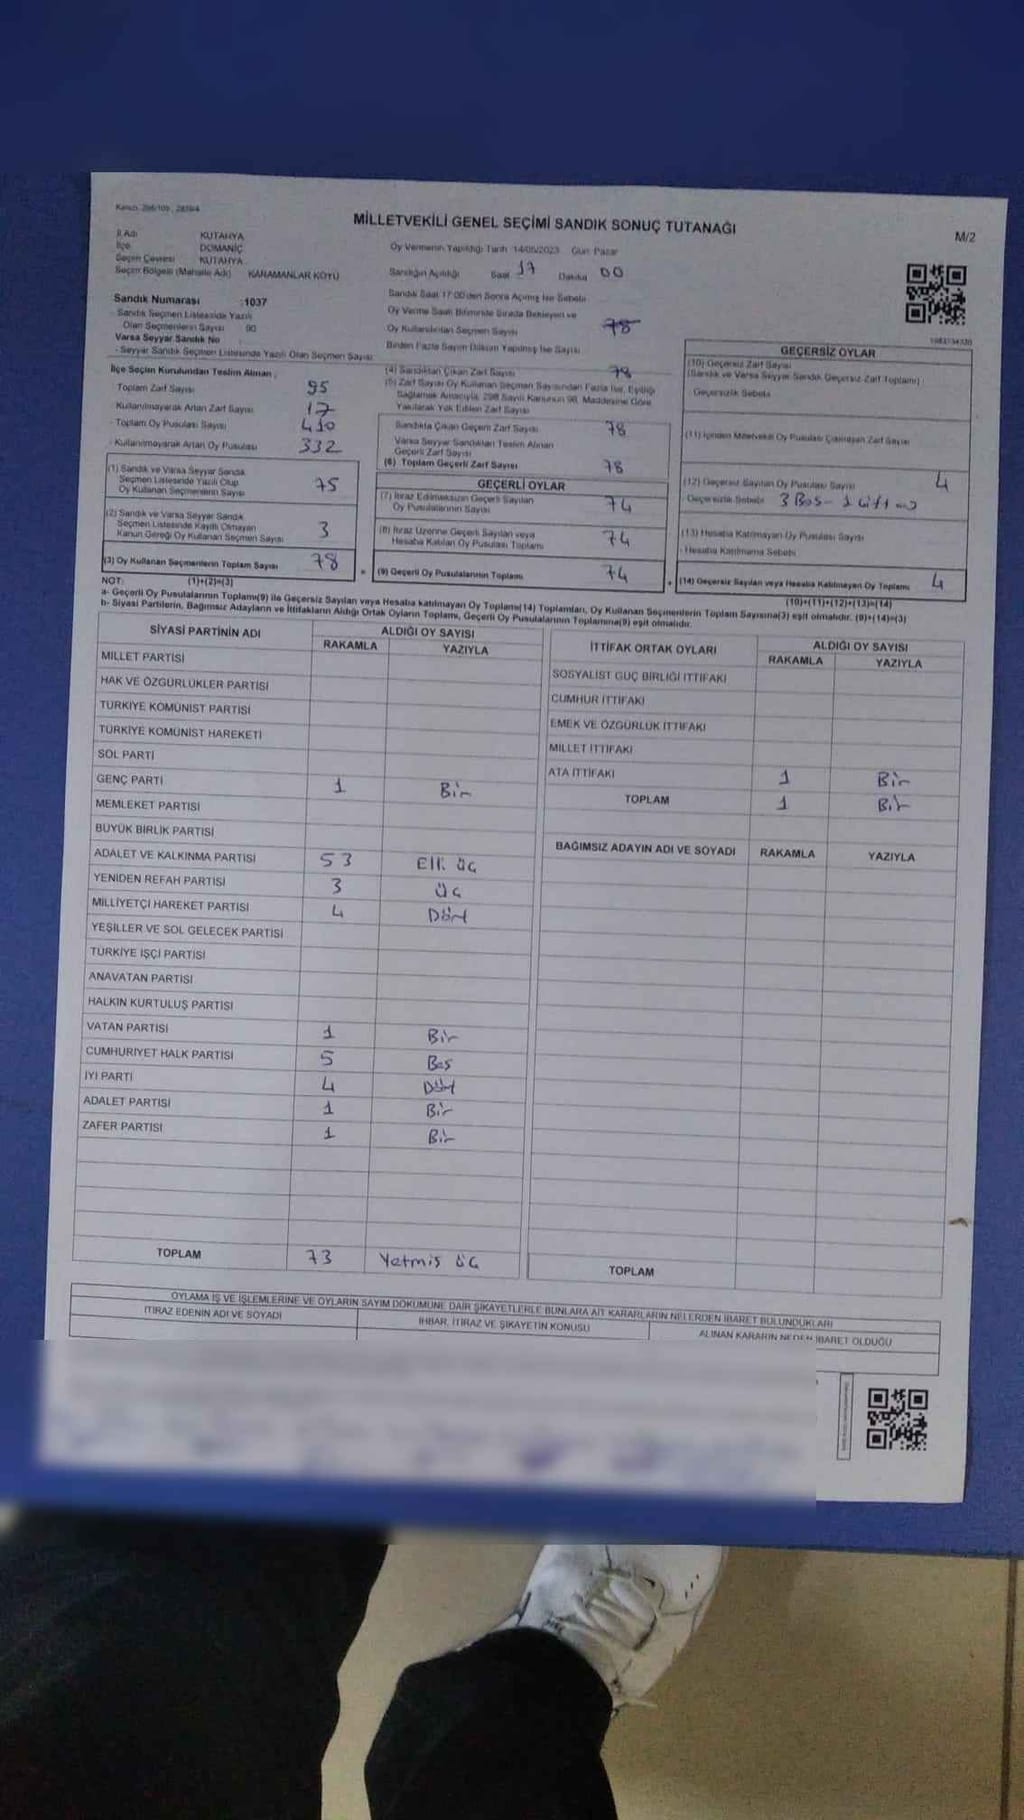 MİLLETVEKİLİ GENEL SEÇİMİ SANDIK SONUÇ TUTANAĞI
M/2
İl Adı KÜTAHYA
İlçe DOMANİÇ
Seçim Çevresi KÜTAHYA
Seçim Bölgesi (Mahalle Adı) KARAMANLAR KÖYÜ
Oy Vermenin Yapıldığı Tarih 14/05/2023 Gün: Pazar
Sandığın Açıldığı Saat 17 Dakika 00
Sandık Saat 17:00'den Sonra Açılmış İse Sebebi
Oy Verme Saati Bitiminde Sırada Bekleyen ve
Oy Kullandırılan Seçmen Sayısı 78
Birden Fazla Sayım Döküm Yapılmış İse Sayısı
Sandık Numarası :1037
- Sandık Seçmen Listesinde Yazılı
Olan Seçmenlerin Sayısı 90
Varsa Seyyar Sandık No
- Seyyar Sandık Seçmen Listesinde Yazılı Olan Seçmen Sayısı:
İlçe Seçim Kurulundan Teslim Alınan ;
Toplam Zarf Sayısı 95
Kullanılmayarak Artan Zarf Sayısı 17
- Toplam Oy Pusulası Sayısı 410
- Kullanılmayarak Artan Oy Pusulası 332
(1) Sandık ve Varsa Seyyar Sandık
Seçmen Listesinde Yazılı Olup
Oy Kullanan Seçmenlerin Sayısı 75
(2) Sandık ve Varsa Seyyar Sandık
Seçmen Listesinde Kayıtlı Olmayan
Kanun Gereği Oy Kullanan Seçmen Sayısı 3
(3) Oy Kullanan Seçmenlerin Toplam Sayısı 78
(4) Sandıktan Çıkan Zarf Sayısı 78
(5) Zarf Sayısı Oy Kullanan Seçmen Sayısından Fazla İse, Eşitliği
Sağlamak Amacıyla, 298 Sayılı Kanunun 98. Maddesine Göre
Yakılarak Yok Edilen Zarf Sayısı
Sandıkta Çıkan Geçerli Zarf Sayısı 78
Varsa Seyyar Sandıktan Teslim Alınan
Geçerli Zarf Sayısı
(6) Toplam Geçerli Zarf Sayısı 78
GEÇERLİ OYLAR
(7) İtiraz Edilmeksizin Geçerli Sayılan
Oy Pusulalarının Sayısı 74
(8) İtiraz Üzerine Geçerli Sayılan veya
Hesaba Katılan Oy Pusulası Toplamı 74
(9) Geçerli Oy Pusulalarının Toplamı 74
GEÇERSİZ OYLAR
(10) Geçersiz Zarf Sayısı
(Sandık ve Varsa Seyyar Sandık Geçersiz Zarf Toplamı)
Geçersizlik Sebebi
(11) İçinden Milletvekili Oy Pusulası Çıkmayan Zarf Sayısı
(12) Geçersiz Sayılan Oy Pusulası Sayısı 4
Geçersizlik Sebebi 3 Boş - 1
(13) Hesaba Katılmayan Oy Pusulası Sayısı
- Hesaba Katılmama Sebebi
(14) Geçersiz Sayılan veya Hesaba Katılmayan Oy Toplamı 4
NOT: (1)+(2)=(3)
(10)+(11)+(12)+(13)=(14)
a- Geçerli Oy Pusulalarının Toplamı(9) ile Geçersiz Sayılan veya Hesaba Katılmayan Oy Toplamı(14) Toplamları, Oy Kullanan Seçmenlerin Toplam Sayısına(3) eşit olmalıdır. (9)+(14)=(3)
b- Siyasi Partilerin, Bağımsız Adayların ve İttifakların Aldığı Ortak Oyların Toplamı, Geçerli Oy Pusulalarının Toplamına(9) eşit olmalıdır.
SİYASİ PARTİNİN ADI ALDIĞI OY SAYISI
RAKAMLA YAZIYLA
MİLLET PARTİSİ
HAK VE ÖZGÜRLÜKLER PARTİSİ
TÜRKİYE KOMÜNİST PARTİSİ
TÜRKİYE KOMÜNİST HAREKETİ
SOL PARTİ
GENÇ PARTİ 1 Bir
MEMLEKET PARTİSİ
BÜYÜK BİRLİK PARTİSİ
ADALET VE KALKINMA PARTİSİ 53 Elli üç
YENİDEN REFAH PARTİSİ 3 üç
MİLLİYETÇİ HAREKET PARTİSİ 4 Dört
YEŞİLLER VE SOL GELECEK PARTİSİ
TÜRKİYE İŞÇİ PARTİSİ
ANAVATAN PARTİSİ
HALKIN KURTULUŞ PARTİSİ
VATAN PARTİSİ 1 Bir
CUMHURİYET HALK PARTİSİ 5 Beş
İYİ PARTİ 4 Dört
ADALET PARTİSİ 1 Bir
ZAFER PARTİSİ 1 Bir
TOPLAM 73 Yetmiş üç
İTTİFAK ORTAK OYLARI ALDIĞI OY SAYISI
RAKAMLA YAZIYLA
SOSYALİST GÜÇ BİRLİĞİ İTTİFAKI
CUMHUR İTTİFAKI
EMEK VE ÖZGÜRLÜK İTTİFAKI
MİLLET İTTİFAKI
ATA İTTİFAKI 1 Bir
TOPLAM 1 Bir
BAĞIMSIZ ADAYIN ADI VE SOYADI RAKAMLA YAZIYLA
TOPLAM
OYLAMA İŞ VE İŞLEMLERİNE VE OYLARIN SAYIM DÖKÜMÜNE DAİR ŞİKAYETLERLE BUNLARA AİT KARARLARIN NELERDEN İBARET BULUNDUKLARI
İTİRAZ EDENİN ADI VE SOYADI İHBAR, İTİRAZ VE ŞİKAYETİN KONUSU ALINAN KARARIN NEDEN İBARET OLDUĞU